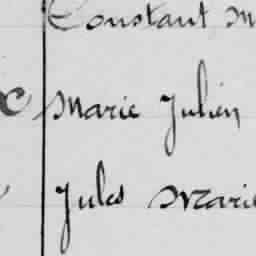 Constant M
Marie Julien
Jules Marie